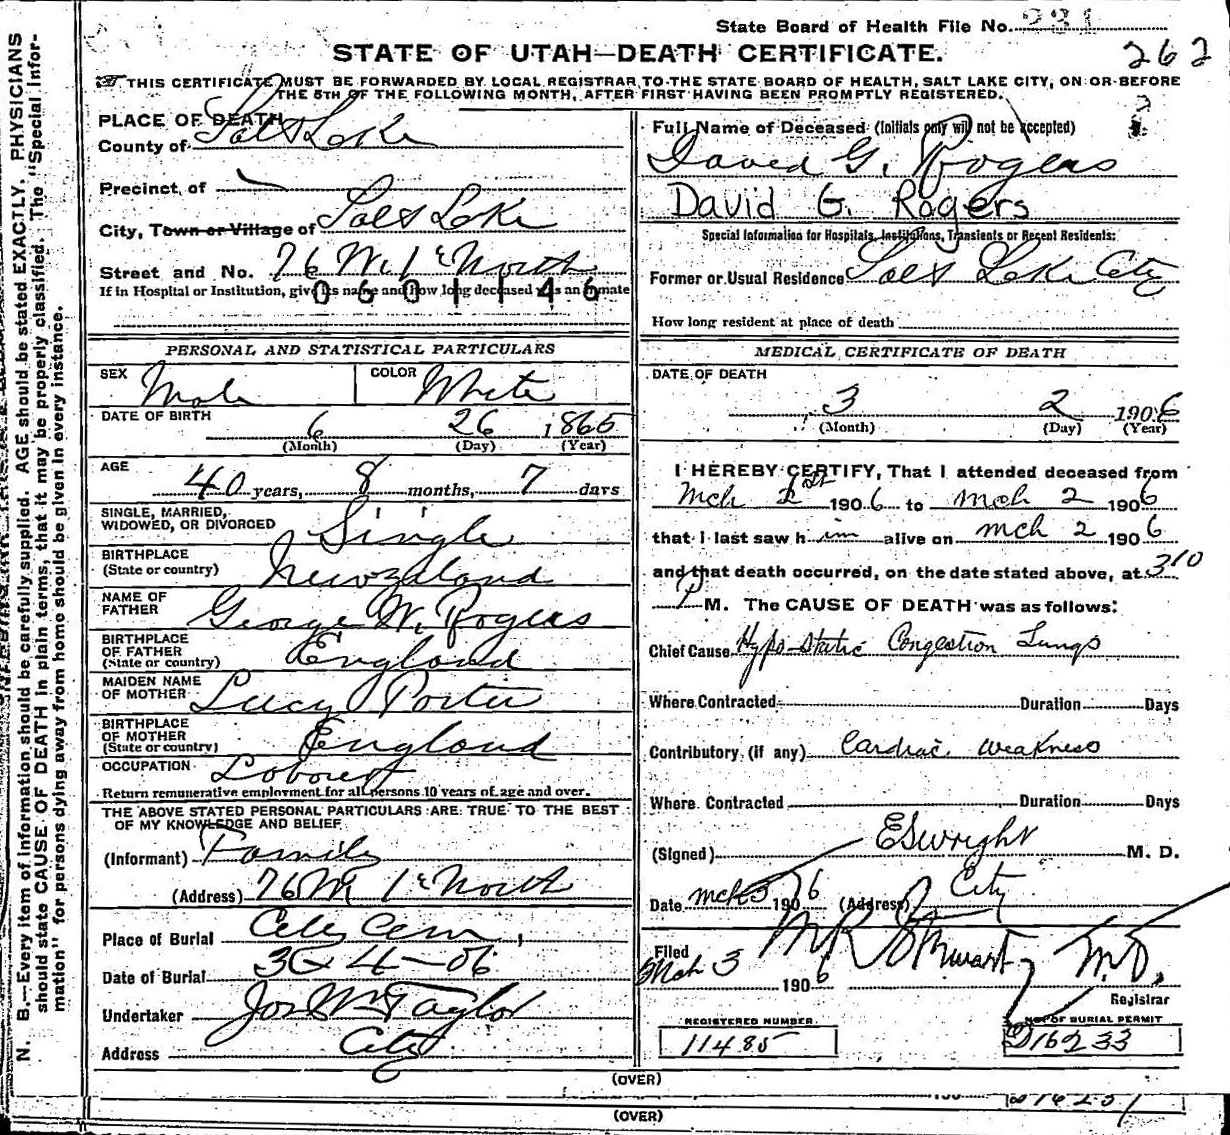 State Board of Health File No. 231
262
STATE OF UTAH—DEATH CERTIFICATE.
THIS CERTIFICATE MUST BE FORWARDED BY LOCAL REGISTRAR TO THE STATE BOARD OF HEALTH, SALT LAKE CITY, ON OR BEFORE
THE 5TH OF THE FOLLOWING MONTH, AFTER FIRST HAVING BEEN PROMPTLY REGISTERED.
N. B.—Every item of information should be carefully supplied. AGE should be stated EXACTLY. PHYSICIANS
should state CAUSE OF DEATH in plain terms, that it may be properly classified. The "Special Infor-
mation" for persons dying away from home should be given in every instance.
PLACE OF DEATH
County of Salt Lake
Precinct of
City, Town or Village of Salt Lake
Street and No. 76 W. 1st North
If in Hospital or Institution, give its name and how long deceased was an inmate
0601146
PERSONAL AND STATISTICAL PARTICULARS
SEX Male COLOR White
DATE OF BIRTH 6 26 1865
(Month) (Day) (Year)
AGE 40 years, 8 months, 7 days
SINGLE, MARRIED, WIDOWED, OR DIVORCED Single
BIRTHPLACE (State or country) Newzeland
NAME OF FATHER George W. Rogers
BIRTHPLACE OF FATHER (State or country) England
MAIDEN NAME OF MOTHER Lucy Porter
BIRTHPLACE OF MOTHER (State or country) England
OCCUPATION Laborer
Return remunerative employment for all persons 10 years of age and over.
THE ABOVE STATED PERSONAL PARTICULARS ARE TRUE TO THE BEST
OF MY KNOWLEDGE AND BELIEF
(Informant) Family
(Address) 76 W 1st North
Place of Burial City Cem
Date of Burial 3-4-06
Undertaker Jos Wm Taylor
Address City
Full Name of Deceased (Initials only will not be accepted)
David G. Rogers
David G. Rogers
Special Information for Hospitals, Institutions, Transients or Recent Residents:
Former or Usual Residence Salt Lake City
How long resident at place of death
MEDICAL CERTIFICATE OF DEATH
DATE OF DEATH
3 2 1906
(Month) (Day) (Year)
I HEREBY CERTIFY, That I attended deceased from
Mch 1906 to Mch 2 1906
that I last saw him alive on mch 2 1906
and that death occurred, on the date stated above, at 3 10
P M. The CAUSE OF DEATH was as follows:
Chief Cause Hypo-static Congestion Lungs
Where Contracted Duration Days
Contributory (if any) Cardiac weakness
Where Contracted Duration Days
(Signed) E S Wright M. D.
Date mch 3 1906 (Address) City
Filed Mch 3 1906 M R Stewart, M.D.
Registrar
REGISTERED NUMBER
11485
NO. OF BURIAL PERMIT
D16233
(OVER)
(OVER)